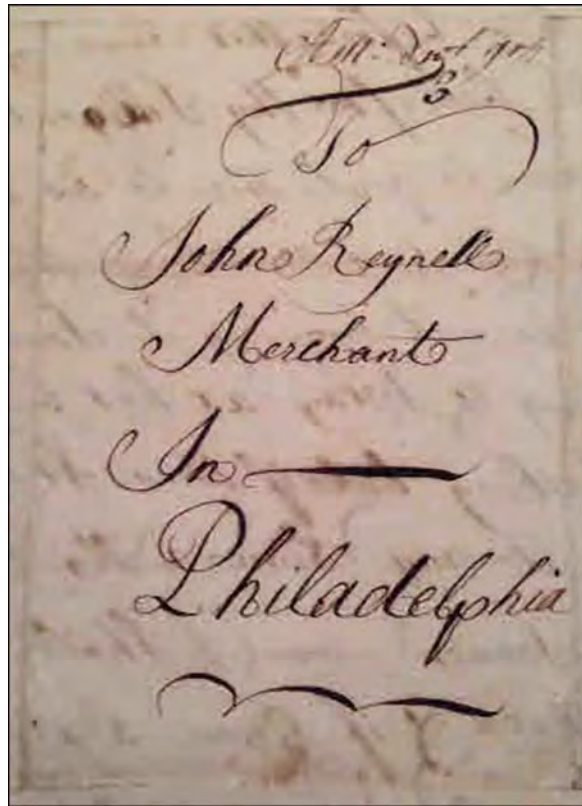 To
John Reynell
Merchant
In
Philadelphia